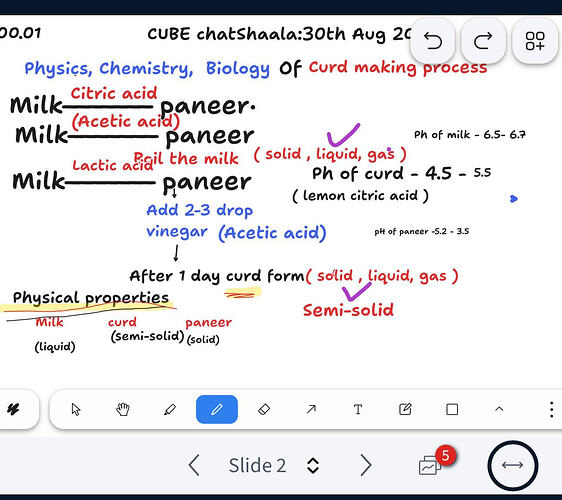 00.01
CUBE chatShaala:30th Aug 20
Physics, Chemistry, Biology Of Curd making process
Milk Citric acid paneer.
Milk (Acetic acid) paneer
Ph of milk - 6.5- 6.7
Boil the milk ( solid , liquid, gas )
Milk Lactic acid paneer
Ph of curd - 4.5 - 5.5
( lemon citric acid )
Add 2-3 drop
vinegar (Acetic acid)
pH of paneer -5.2 - 3.5
After 1 day curd form( solid , liquid, gas )
Physical properties
Semi-solid
Milk curd paneer
(liquid) (semi-solid) (solid)
T
Slide 2
5